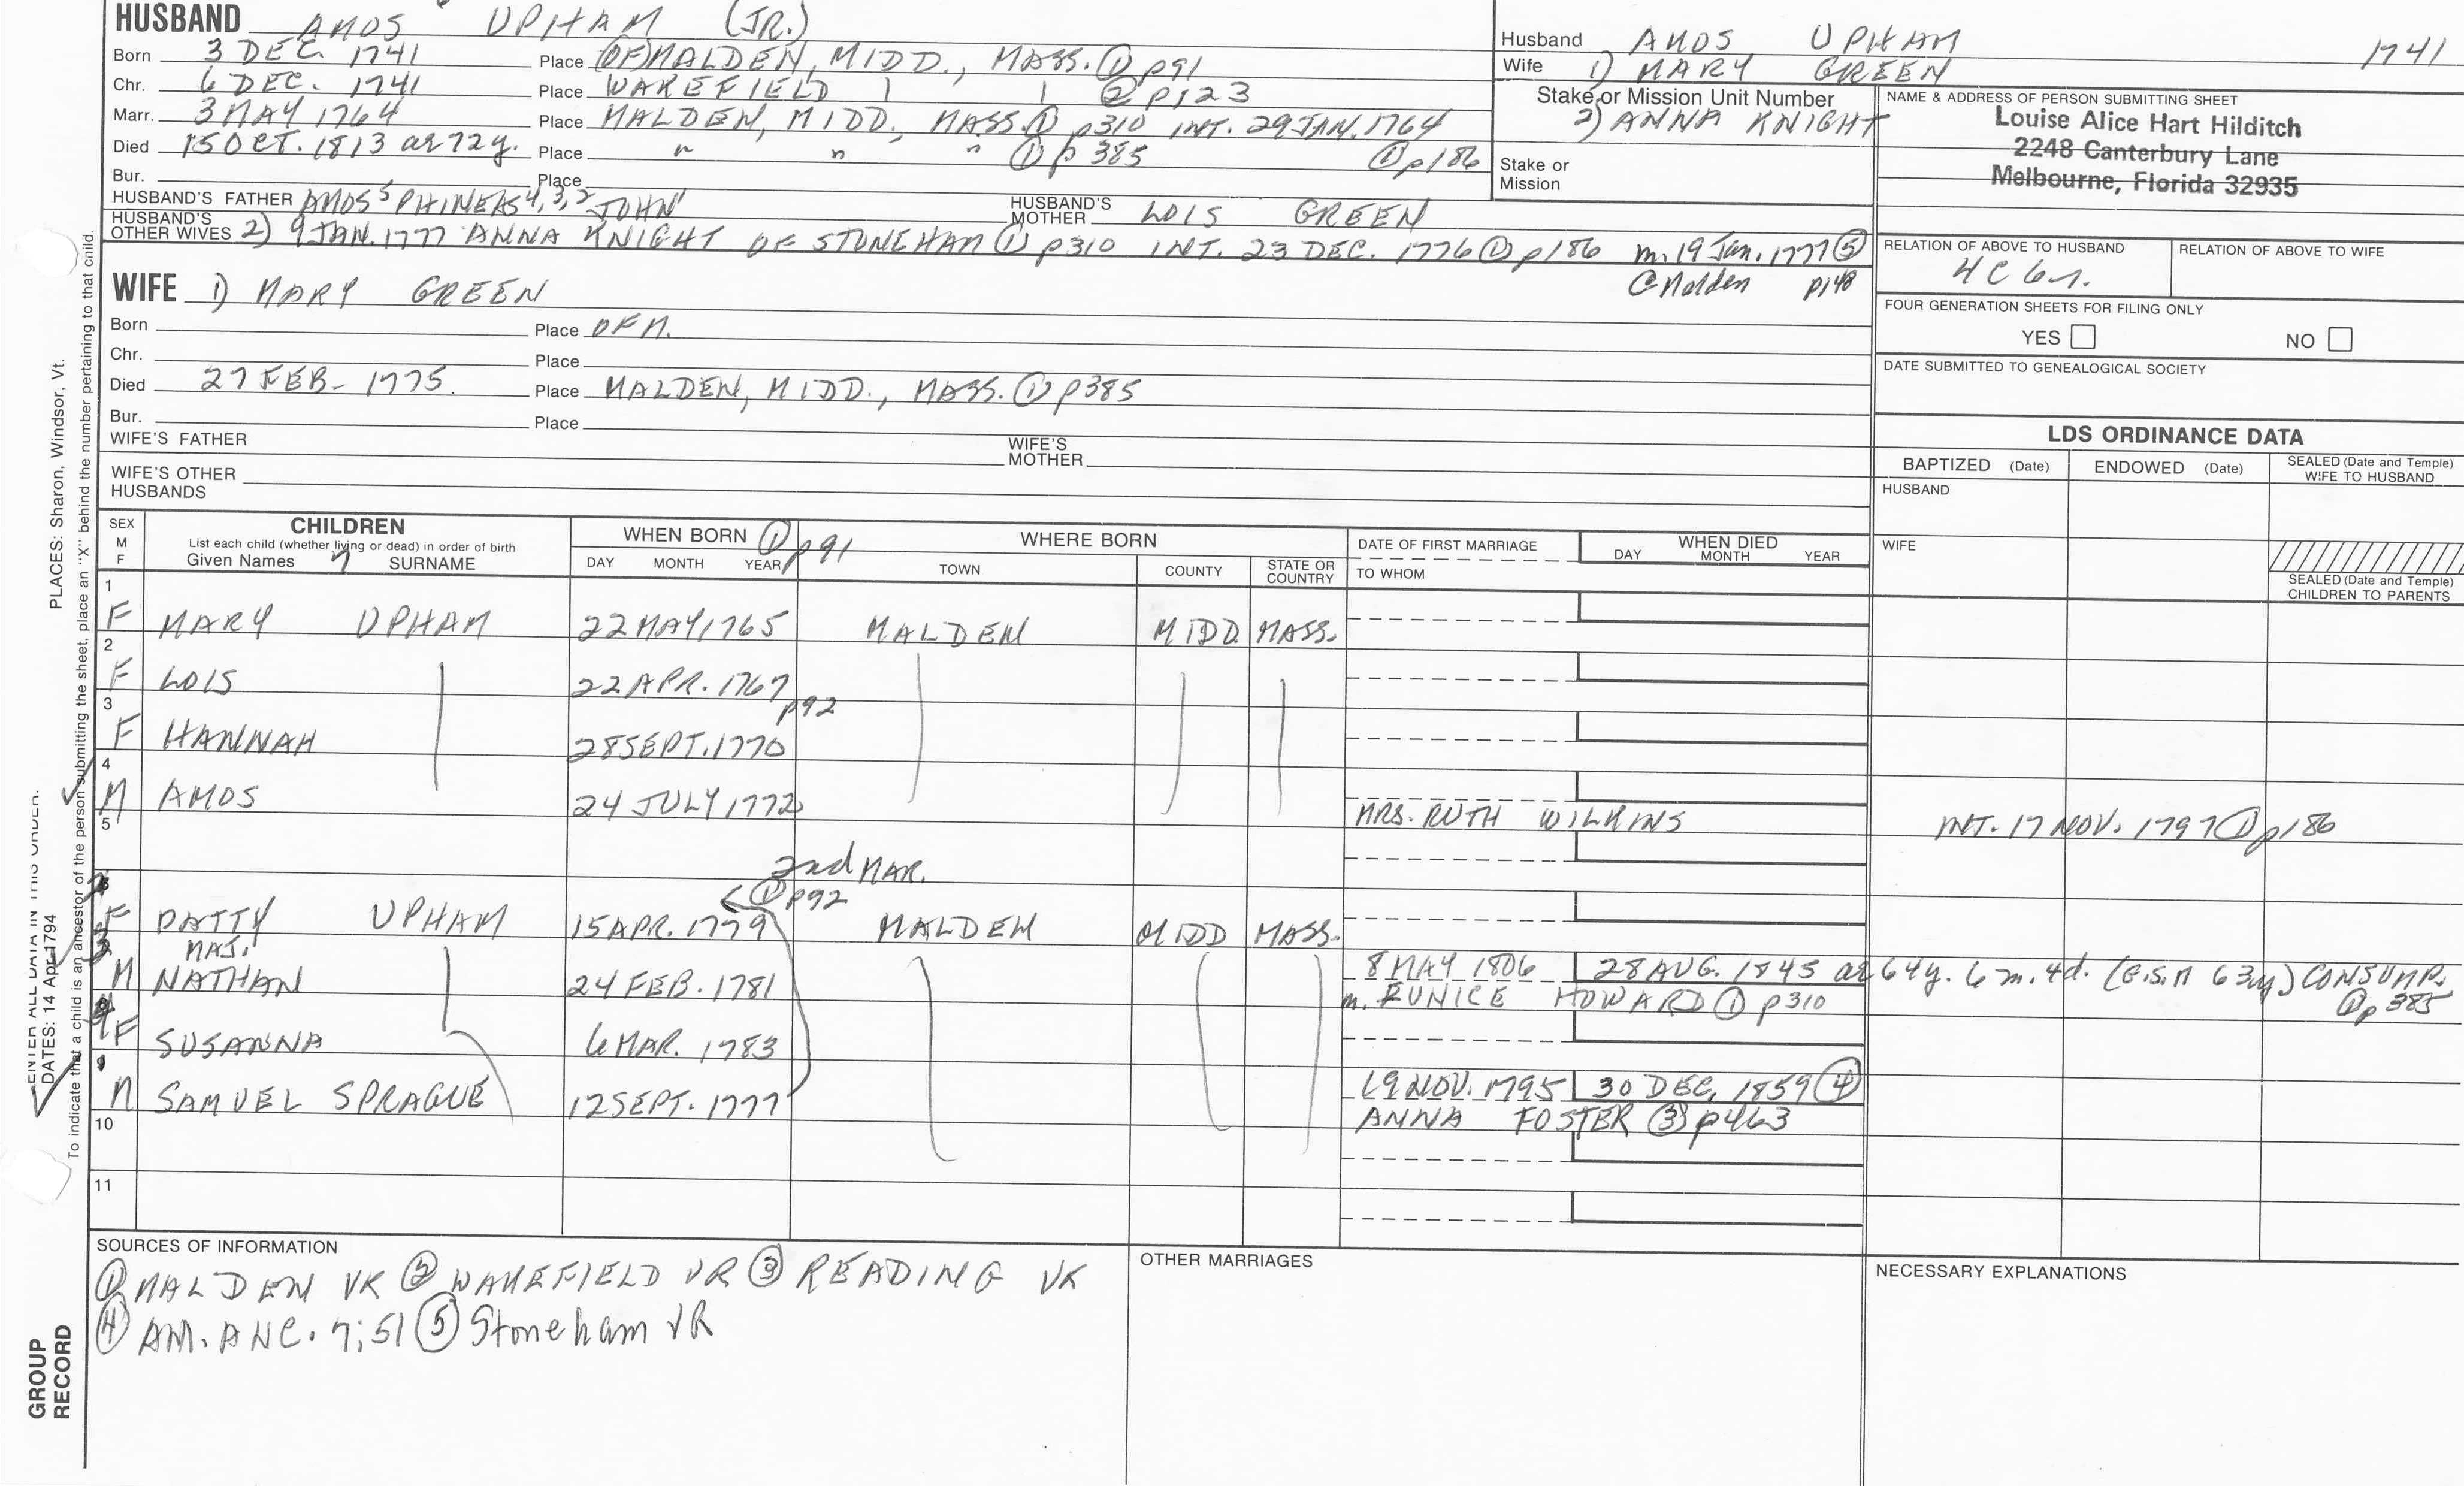 HUSBAND AMOS UPHAM (JR.)
Born 3 DEC. 1741 Place (OF) MALDEN, MIDD., MASS. ① p91
Chr. 6 DEC. 1741 Place WAKEFIELD ② p123
Marr. 3 MAY 1764 Place MALDEN, MIDD., MASS. ① p310 INT. 29 JAN. 1764
Died 15 OCT. 1813 ae 72 y. Place " " " ① p 385 ① p186
Bur. Place
HUSBAND'S FATHER AMOS⁵ PHINEAS⁴,³,² JOHN¹ HUSBAND'S MOTHER LOIS GREEN
HUSBAND'S OTHER WIVES 2) 9 JAN. 1777 ANNA KNIGHT OF STONEHAM ① p310 INT. 23 DEC. 1776 ① p186 m. 19 Jan. 1777 ⑤
@ Malden p148
Husband AMOS UPHAM 1741
Wife 1) MARY GREEN
Stake or Mission Unit Number
2) ANNA KNIGHT
Stake or Mission
NAME & ADDRESS OF PERSON SUBMITTING SHEET
Louise Alice Hart Hilditch
2248 Canterbury Lane
Melbourne, Florida 32935
RELATION OF ABOVE TO HUSBAND RELATION OF ABOVE TO WIFE
4C 6
FOUR GENERATION SHEETS FOR FILING ONLY
YES NO
DATE SUBMITTED TO GENEALOGICAL SOCIETY
WIFE 1) MARY GREEN
Born Place OF M.
Chr. Place
Died 27 FEB. 1775. Place MALDEN, MIDD., MASS. ① p385
Bur. Place
WIFE'S FATHER WIFE'S MOTHER
WIFE'S OTHER HUSBANDS
LDS ORDINANCE DATA
BAPTIZED (Date) ENDOWED (Date) SEALED (Date and Temple) WIFE TO HUSBAND
HUSBAND
WIFE
SEALED (Date and Temple) CHILDREN TO PARENTS
SEX M F CHILDREN List each child (whether living or dead) in order of birth Given Names SURNAME
WHEN BORN ① p91 DAY MONTH YEAR
WHERE BORN TOWN COUNTY STATE OR COUNTRY
DATE OF FIRST MARRIAGE TO WHOM
WHEN DIED DAY MONTH YEAR
1
F MARY UPHAM 22 MAY 1765 MALDEN MIDD. MASS.
2
F LOIS 22 APR. 1767
3 p92
F HANNAH 28 SEPT. 1770
4
M AMOS 24 JULY 1772
5 MRS. RUTH WILKINS INT. 17 NOV. 1797 ① p186
2nd MAR.
① p92
F PATTY UPHAM 15 APR. 1779 MALDEN MIDD MASS.
MAJ.
M NATHAN 24 FEB. 1781 8 MAY 1806 28 AUG. 1845 ae 64y. 6 m. 4d. (G.S.M 63y) CONSUMP. ① p385
m. EUNICE HOWARD ① p310
F SUSANNA 6 MAR. 1783
9
M SAMUEL SPRAGUE 12 SEPT. 1777 19 NOV. 1795 30 DEC. 1859 ④
10 ANNA FOSTER ③ p463
11
SOURCES OF INFORMATION
① MALDEN VR ② WAKEFIELD VR ③ READING VR
④ AM. ANC. 7;51 ⑤ Stoneham VR
OTHER MARRIAGES
NECESSARY EXPLANATIONS
GROUP RECORD
ENTER ALL DATA IN THIS ORDER:
DATES: 14 Apr 1794 PLACES: Sharon, Windsor, Vt.
To indicate that a child is an ancestor of the person submitting the sheet, place an "X" behind the number pertaining to that child.